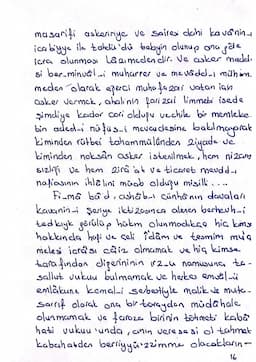 masarifi askeriye ve saires dahi kavânin-i
icabiyye ile tahdid'dü bebyin olunup ona göre
icra olunması lâzımedendir. Ve asker madd
si ber minvâl-i muharrer ve mevâdd-ı mühim
meden olarak eğerci muhafaza-i vatan için
asker vermek, ahalinin farizai zimmeti isede
şimdiye kadar cari olduğu vechile bir memleke
tin aded-i nüfus-ı mevcudesine bakılmayarak
kiminden rütbei tahammülünden ziyade ve
kiminden noksan asker istenilmek, hem nizam
sızlığı ve hem ziraat ve ticaret mevâdd-ı
nafiasının ihlâlini mücib olduğu misillü ....
Fi-mâ ba'd, ashâb-ı cünhanın davaları
kavanin-i şeriye iktizasınca alenen berveçh-i
tedkiyk görülüp hükm olunmadıkça hiç kimse
hakkında hafi ve celi i'dam ve tesmim mua
melesi icrası câiz olmamak ve hiç kimse
tarafından diğerininin ırz-u namusuna ta-
sallut vukuu bulmamak ve herkes emvâl ü
emlâkine kemâl-i serbestiyle malik ve muta-
sarrıf olarak ona bir taraydan müdâhale
olunmamak ve faraza birinin töhmeti kaba
hati vukuu'unda, anın veresesi ol töhmet
kabahatden berriyyü'zzimme olacakların-
16